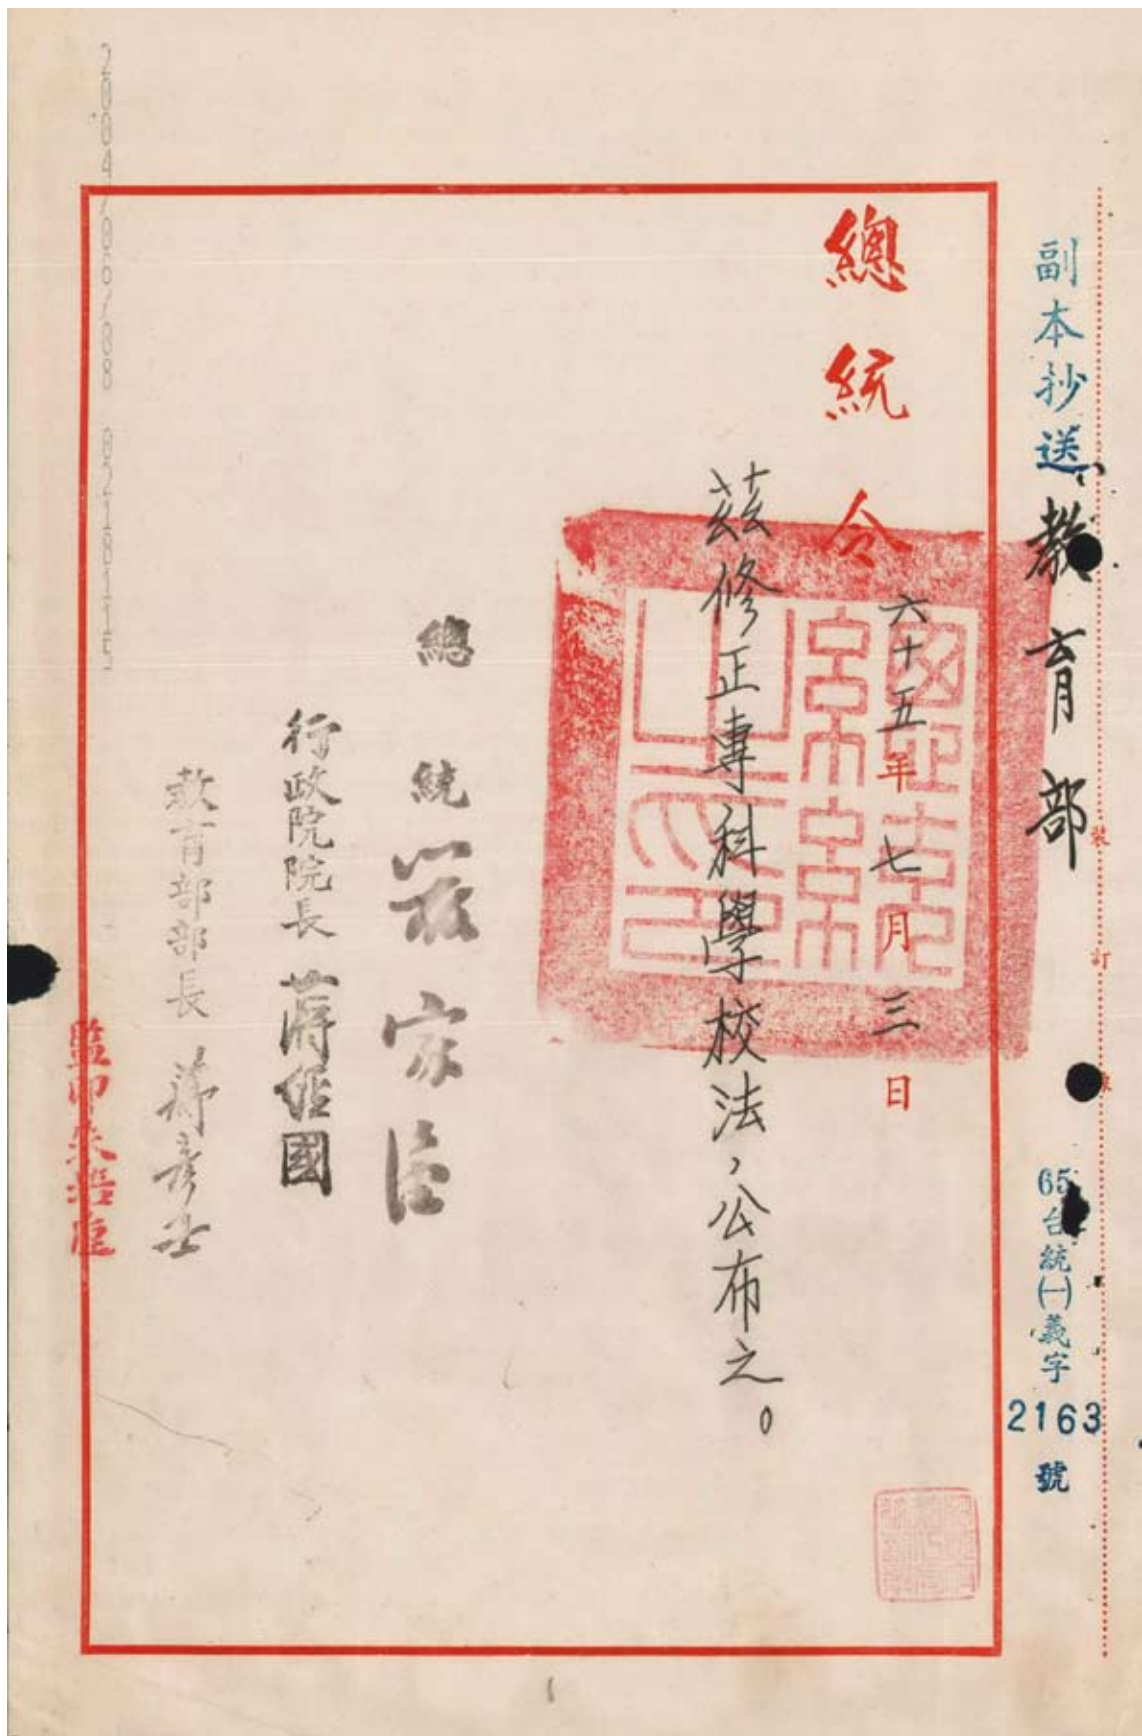 副本抄送教育部
65台統(一)義字2163號
裝訂線
總統令
六十五年七月三日
茲修正專科學校法，公布之。
總統 嚴家淦
行政院院長 蔣經國
教育部部長 蔣彥士
監印朱
2004/06/08